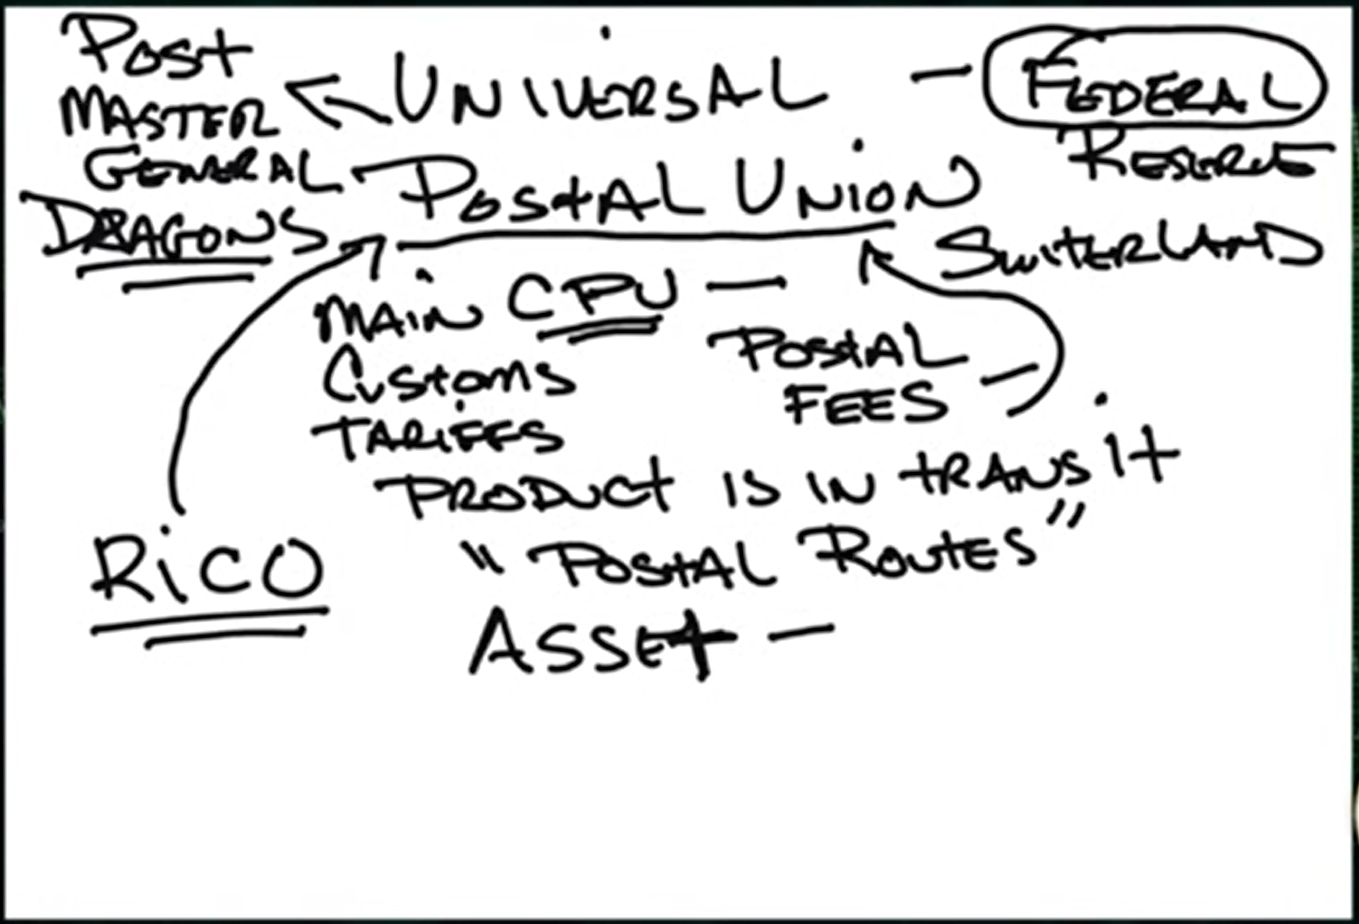 POST
MASTER
GENERAL
DRAGONS
UNIVERSAL
POSTAL UNION
– FEDERAL
RESERVE
SWITERLAND
MAIN CPU –
CUSTOMS
TARIFFS
POSTAL
FEES –
PRODUCT IS IN TRANSIT
"POSTAL ROUTES"
RICO
ASSET –